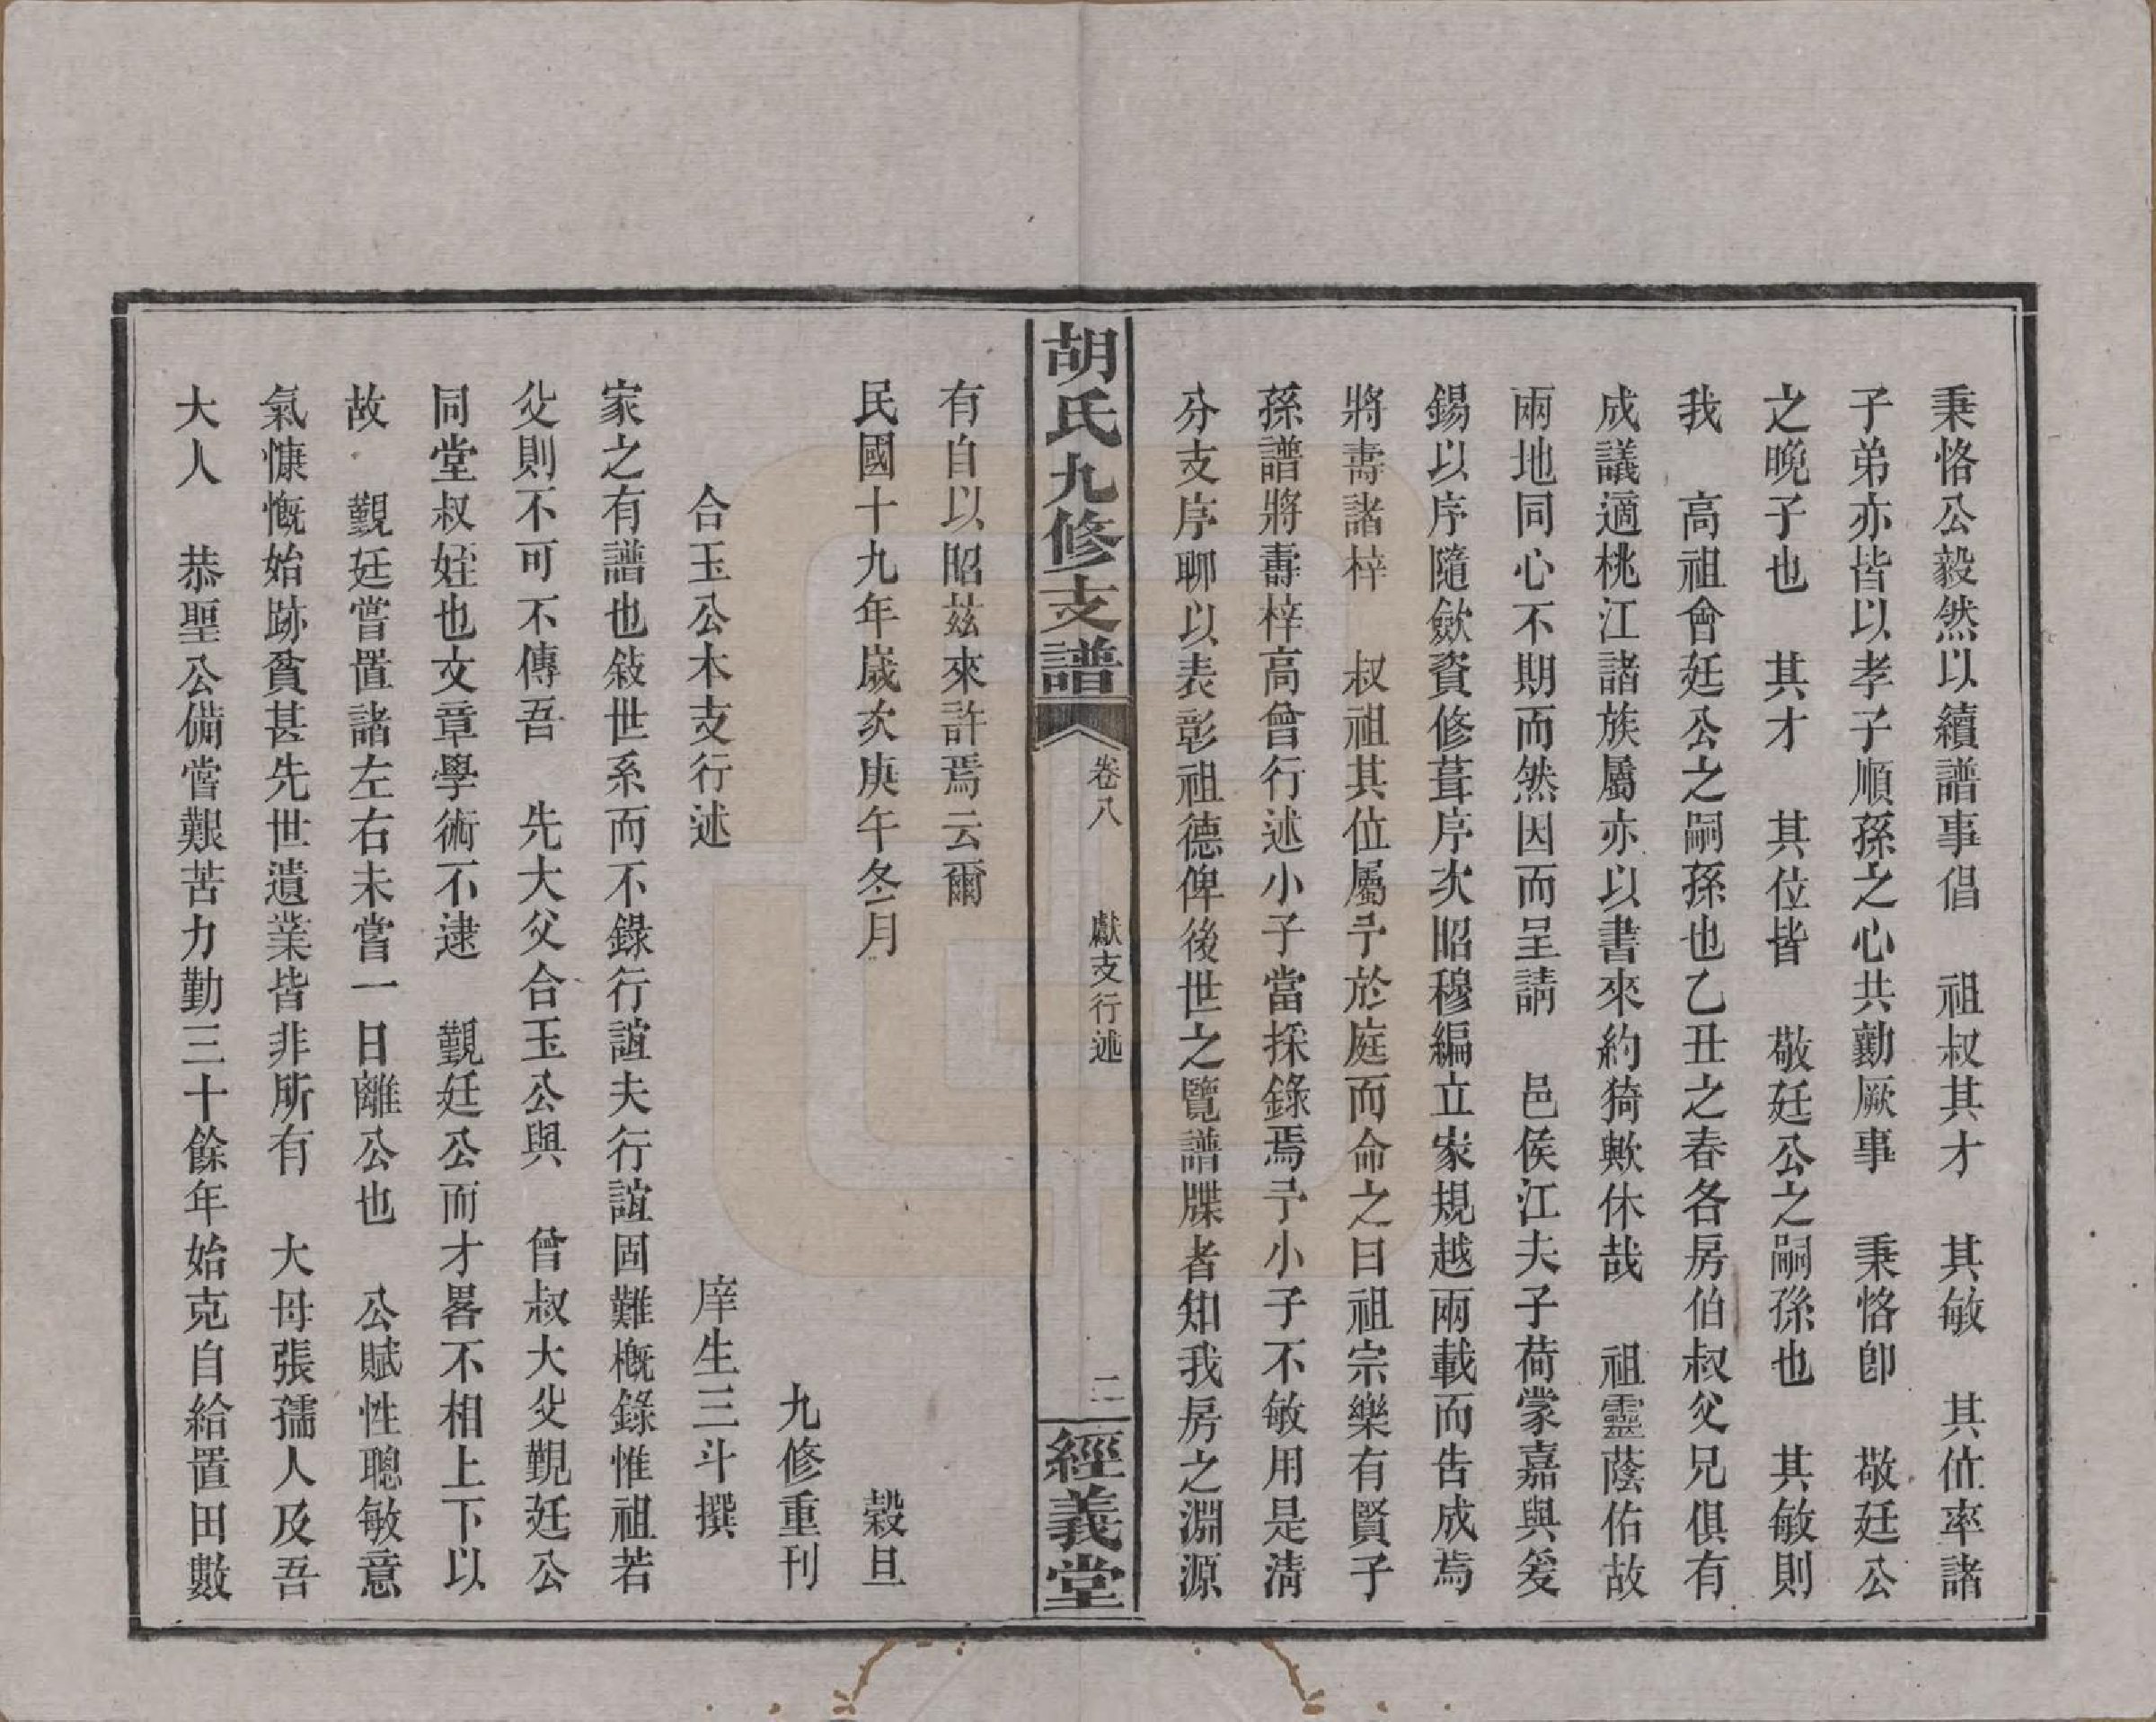 秉恪公毅然以續譜事倡　祖叔其才　其敏　其位率諸
子弟亦皆以孝子順孫之心共勷厥事　秉恪卽　敬廷公
之晚子也　其才　其位皆　敬廷公之嗣孫也　其敏則
我　高祖會廷公之嗣孫也乙丑之春各房伯叔父兄俱有
成議適桃江諸族屬亦以書來約猗歟休哉　祖靈蔭佑故
兩地同心不期而然因而呈請　邑侯江夫子荷蒙嘉與爰
錫以序隨歛資修葺序次昭穆編立家規越兩載而告成焉
將壽諸梓　叔祖其位屬予於庭而命之曰祖宗樂有賢子
孫譜將壽梓高曾行述小子當採錄焉予小子不敏用是清
分支序聊以表彰祖德俾後世之覽譜牒者知我房之淵源
胡氏九修支譜
卷八　獻支行述　二
經義堂
有自以昭茲來許焉云爾
民國十九年歲次庚午冬月　穀旦
九修重刊
合玉公木支行述　庠生三斗撰
家之有譜也敍世系而不錄行誼夫行誼固難概錄惟祖若
父則不可不傳吾　先大父合玉公與　曾叔大父觀廷公
同堂叔姪也文章學術不逮　觀廷公而才畧不相上下以
故　觀廷嘗置諸左右未嘗一日離公也　公賦性聰敏意
氣慷慨始跡貧甚先世遺業皆非所有　大母張孺人及吾
大人　恭聖公備嘗艱苦力勤三十餘年始克自給置田數